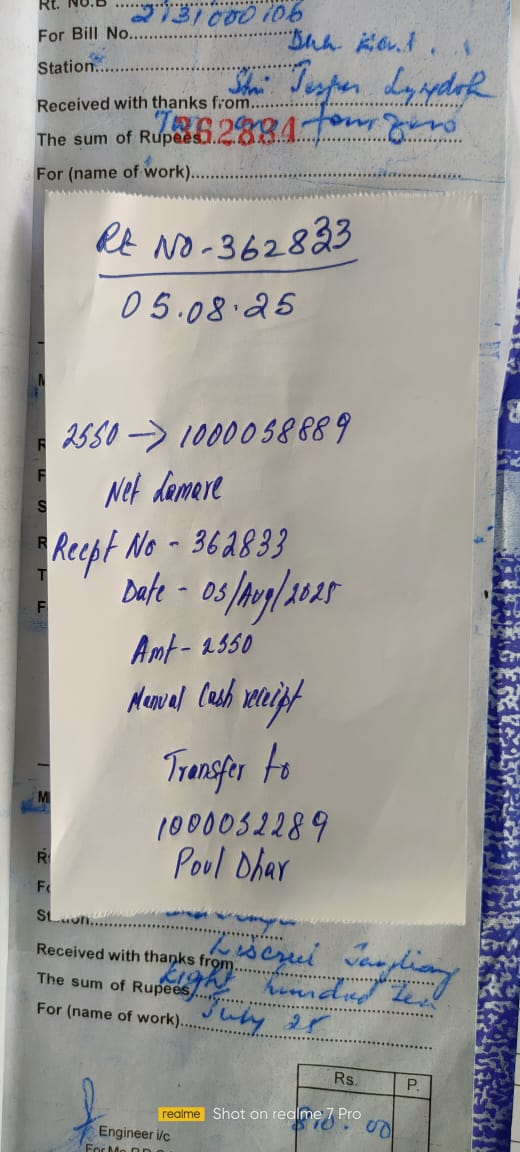 Rt. No.B
For Bill No. 2131000106
Station
Received with thanks from Shri Jesper Lyngdoh
The sum of Rupees four zero
362834
For (name of work)
Rt NO - 362833
05.08.25
2550 → 1000058889
Net Lamare
Recpt No - 362833
Date - 05/Aug/2025
Amt - 2550
Manual Cash receipt
Transfer to
1000032289
Poul Dhar
Received with thanks from
The sum of Rupees Eight hundred ten
For (name of work) July 25
Rs. P.
810.00
Engineer i/c
realme Shot on realme 7 Pro